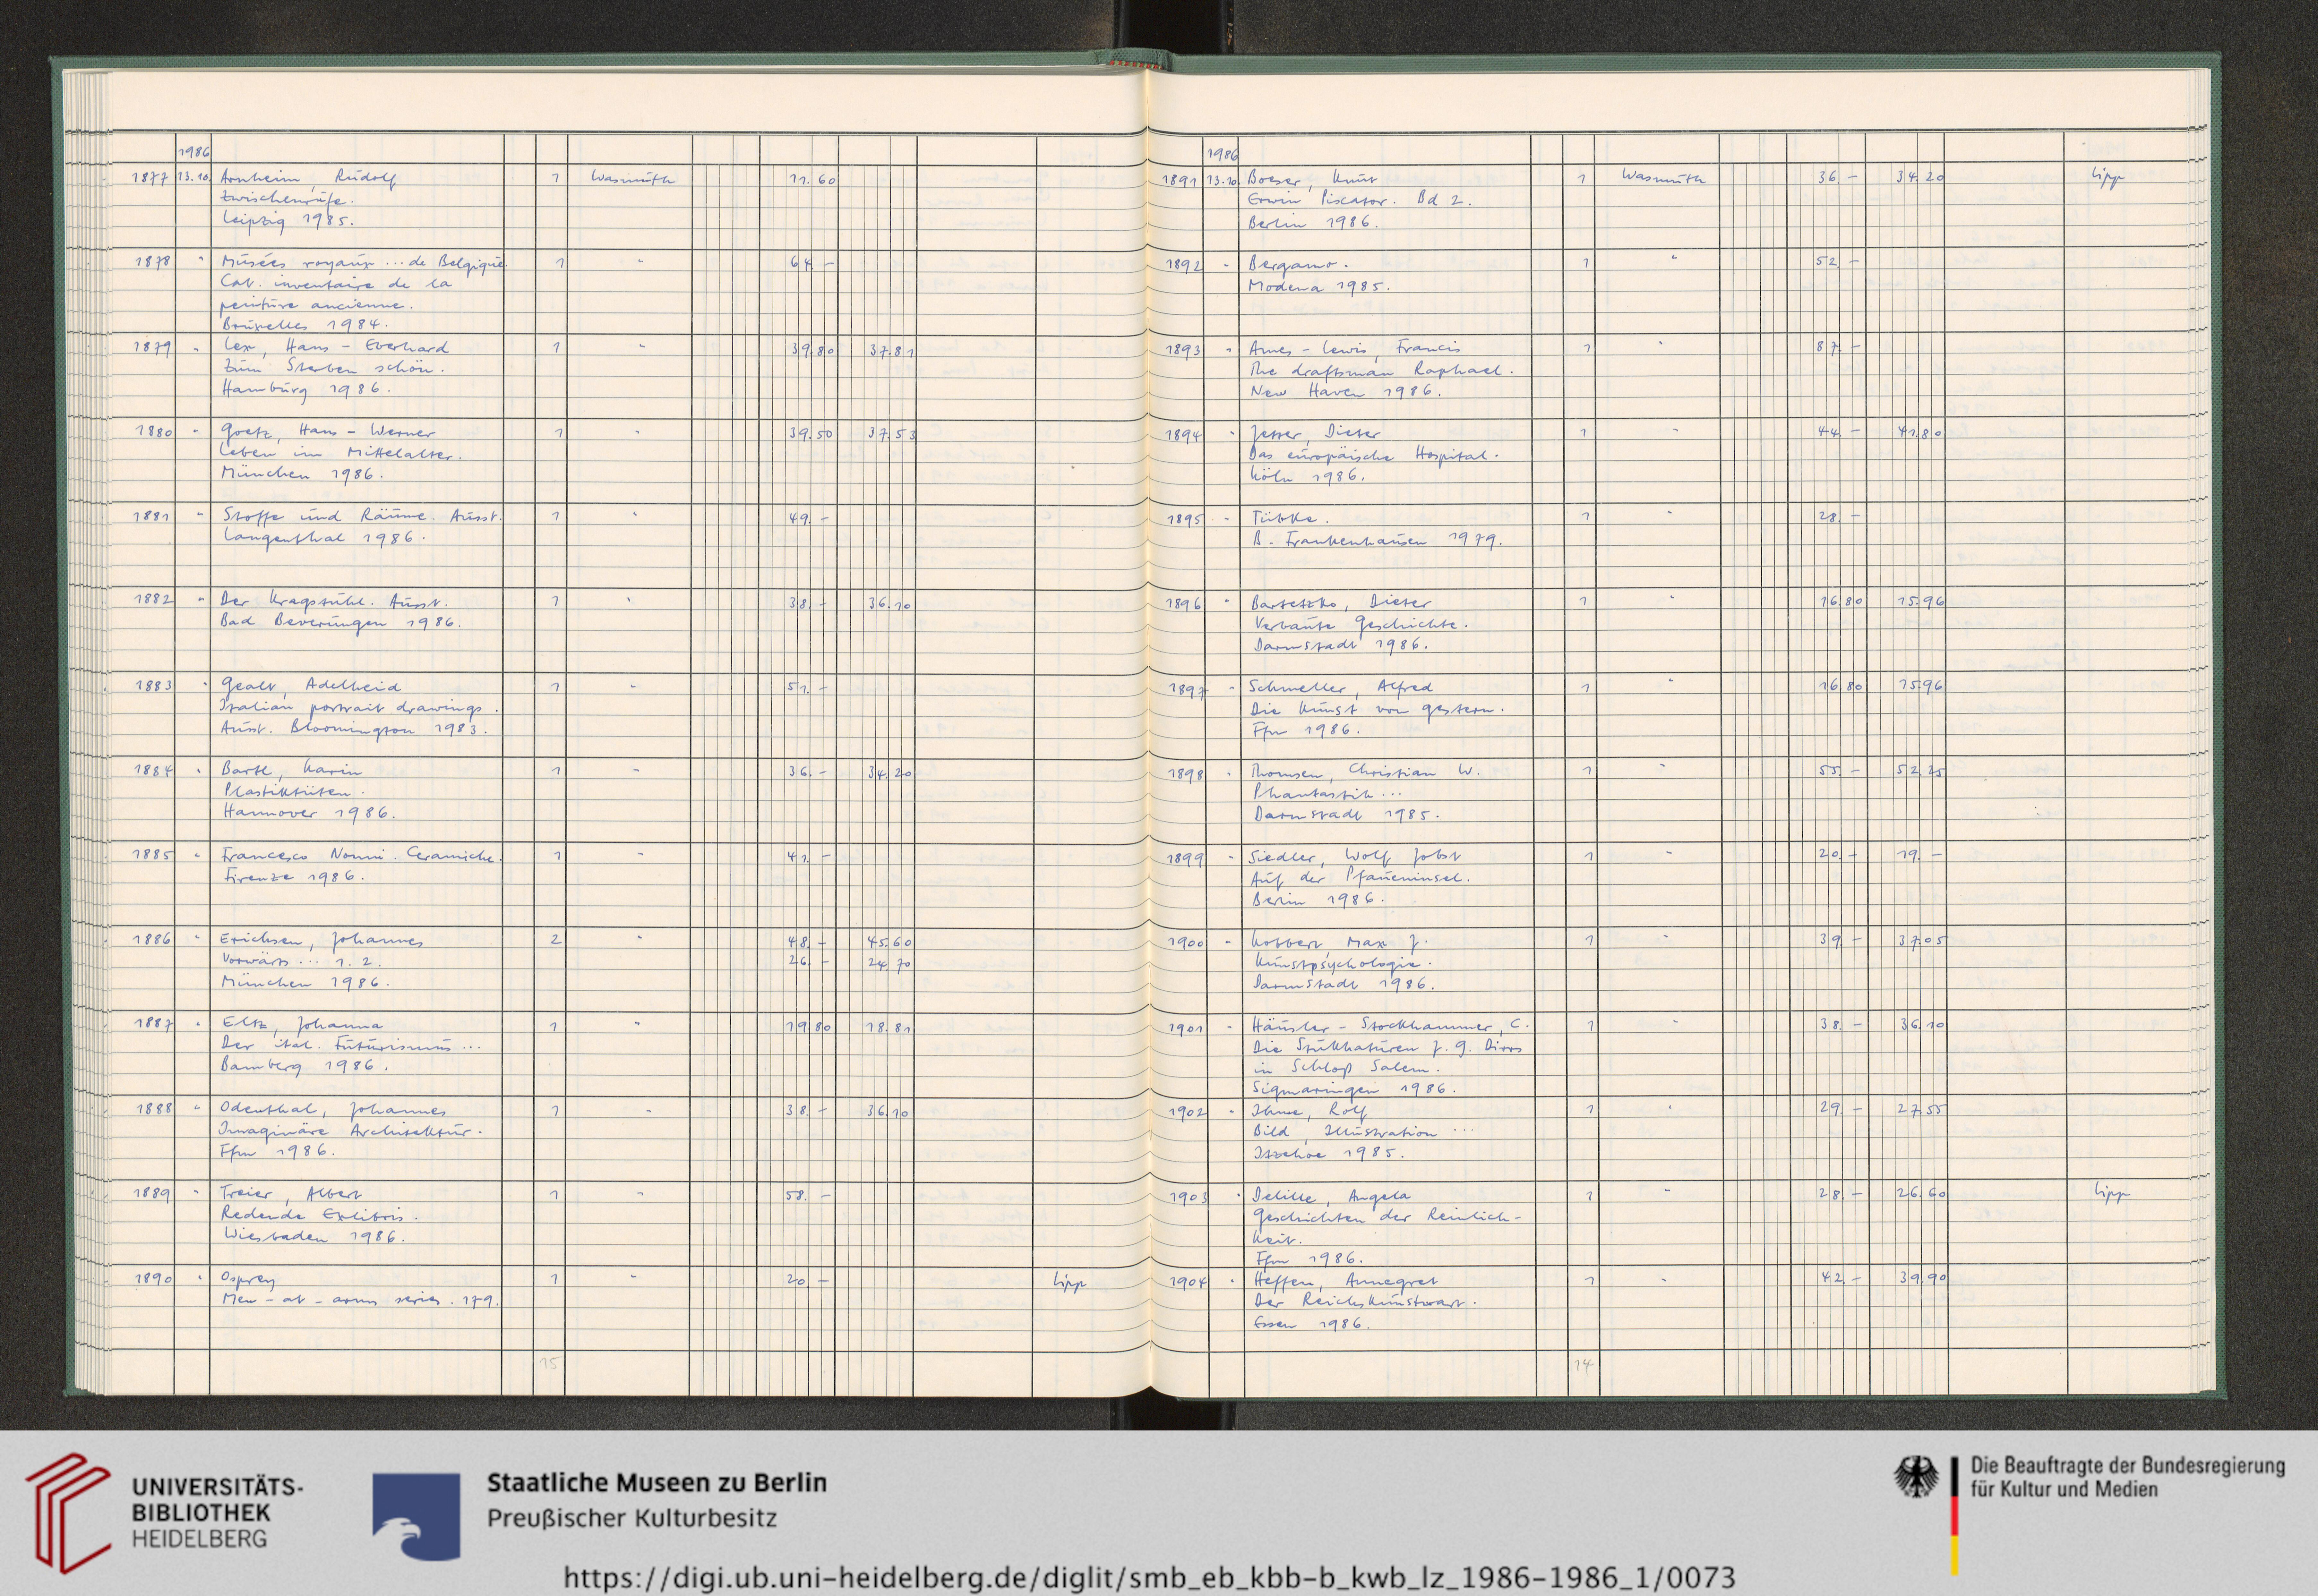 1986
1877 13.10. Arnheim, Rudolf 1 Wasmuth 11.60
Zwischenrufe.
Leipzig 1985.
1878 " Musées royaux ... de Belgique. 1 " 64.-
Cat. inventaire de la
peinture ancienne.
Bruxelles 1984.
1879 " Lex, Hans-Eberhard 1 " 39.80 37.81
Zum Sterben schön.
Hamburg 1986.
1880 " Goetz, Hans-Werner 1 " 39.50 37.53
Leben im Mittelalter.
München 1986.
1881 " Stoffe und Räume. Ausst. 1 " 49.-
Langenthal 1986.
1882 " Der Kragstuhl. Ausst. 1 " 38.- 36.10
Bad Beverungen 1986.
1883 " Gealt, Adelheid 1 " 51.-
Italian portrait drawings.
Ausst. Bloomington 1983.
1884 " Bartl, Karin 1 " 36.- 34.20
Plastiktüten.
Hannover 1986.
1885 " Francesco Nonni. Ceramiche. 1 " 41.-
Firenze 1986.
1886 " Erichsen, Johannes 2 " 48.- 45.60
Vorwärts ... 1. 2. 26.- 24.70
München 1986.
1887 " Eltz, Johanna 1 " 19.80 18.81
Der ital. Futurismus ...
Bamberg 1986.
1888 " Odenthal, Johannes 1 " 38.- 36.10
Imaginäre Architektur.
Ffm 1986.
1889 " Treier, Albert 1 " 58.-
Redende Exlibris.
Wiesbaden 1986.
1890 " Osprey 1 " 20.- Lipp
Men-at-arms series. 179.
15
1986
1891 13.10. Boeser, Knut 1 Wasmuth 36.- 34.20 Lipp
Erwin Piscator. Bd 2.
Berlin 1986.
1892 " Bergamo. 1 " 52.-
Modena 1985.
1893 " Ames-Lewis, Francis 1 " 87.-
The draftsman Raphael.
New Haven 1986.
1894 " Jetter, Dieter 1 " 44.- 41.80
Das europäische Hospital.
Köln 1986.
1895 " Tübke. 1 " 28.-
B. Frankenhausen 1979.
1896 " Bartetzko, Dieter 1 " 16.80 15.96
Verbaute Geschichte.
Darmstadt 1986.
1897 " Schmeller, Alfred 1 " 16.80 15.96
Die Kunst von gestern.
Ffm 1986.
1898 " Thomsen, Christian W. 1 " 55.- 52.25
Phantastik...
Darmstadt 1985.
1899 " Siedler, Wolf Jobst 1 " 20.- 19.-
Auf der Pfaueninsel.
Berlin 1986.
1900 " Kobbert, Max J. 1 " 39.- 37.05
Kunstpsychologie.
Darmstadt 1986.
1901 " Häusler-Stockhammer, C. 1 " 38.- 36.10
Die Stukkaturen J. G. Dirrs
in Schloß Salem.
Sigmaringen 1986.
1902 " Ihme, Rolf 1 " 29.- 27.55
Bild, Illustration ...
Itzehoe 1985.
1903 " Delille, Angela 1 " 28.- 26.60 Lipp
Geschichten der Reinlich-
keit.
Ffm 1986.
1904 " Heffen, Annegret 1 " 42.- 39.90
Der Reichskunstwart.
Essen 1986.
14
UNIVERSITÄTS-
BIBLIOTHEK
HEIDELBERG
Staatliche Museen zu Berlin
Preußischer Kulturbesitz
Die Beauftragte der Bundesregierung
für Kultur und Medien
https://digi.ub.uni-heidelberg.de/diglit/smb_eb_kbb-b_kwb_lz_1986-1986_1/0073